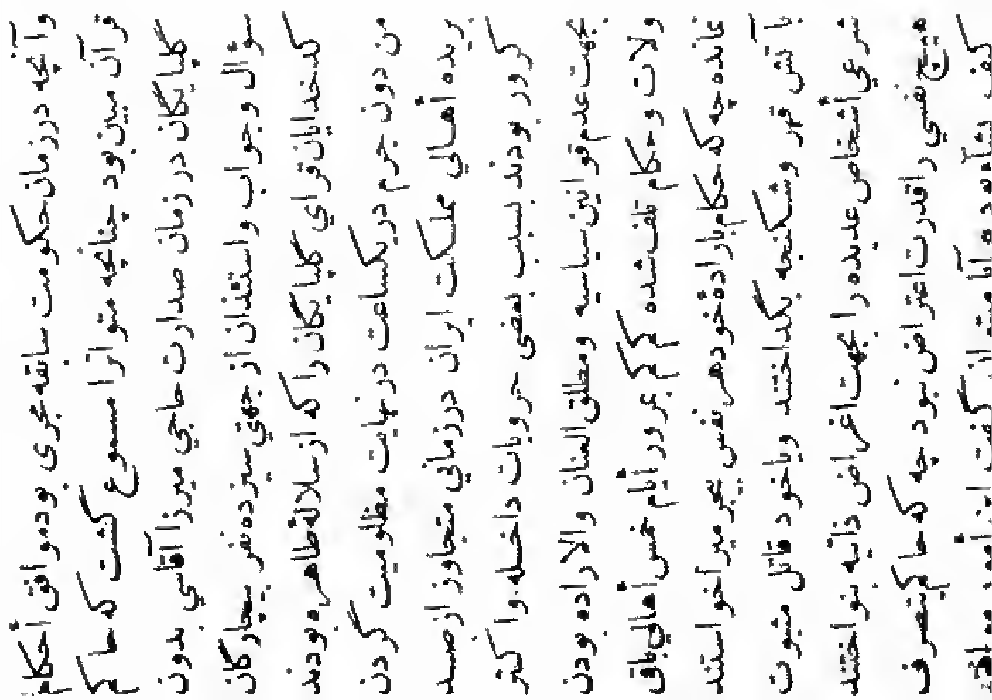 وآنچه در زمان حکومت سابقه مجری بود موافق أحکام
قرآن مبین بود چنانچه متواترا مسموع گشت که حاکم
گلپایگان در زمان صدارت حاجي میرزا آقاسي بدون
سؤال و جواب واستئذان از جهتي سیزده نفر بیچارگان
کدخدایان قراي گلپایگان را که از سلالهٔ طاهره بودند
من دون جرم در یکساعت در نهایت مظلومیت گردن
بریده أهالي مملکت ایران در زماني متجاوز از صد
کرور بودند بسبب بعضی حروبات داخله وا کثر
بجهت عدم قوانین سیاسیه ومطلق العنان والاراده بودن
ولات وحکام تلف شده کم کم بمرور أیام خمس أهالي باقی
نمانده چه که حکام باراده خود هر نفس بیجرمیرا خواستند
بآتش قهر وشکنجه بگداختند ویاخود قاتل مثبوت
شرعي أشخاص عدیده را بجهت اغراض ذاتیه بنواختند
هیچ نفسي را قدرت اعتراض نبود چه که حاکم متصرف